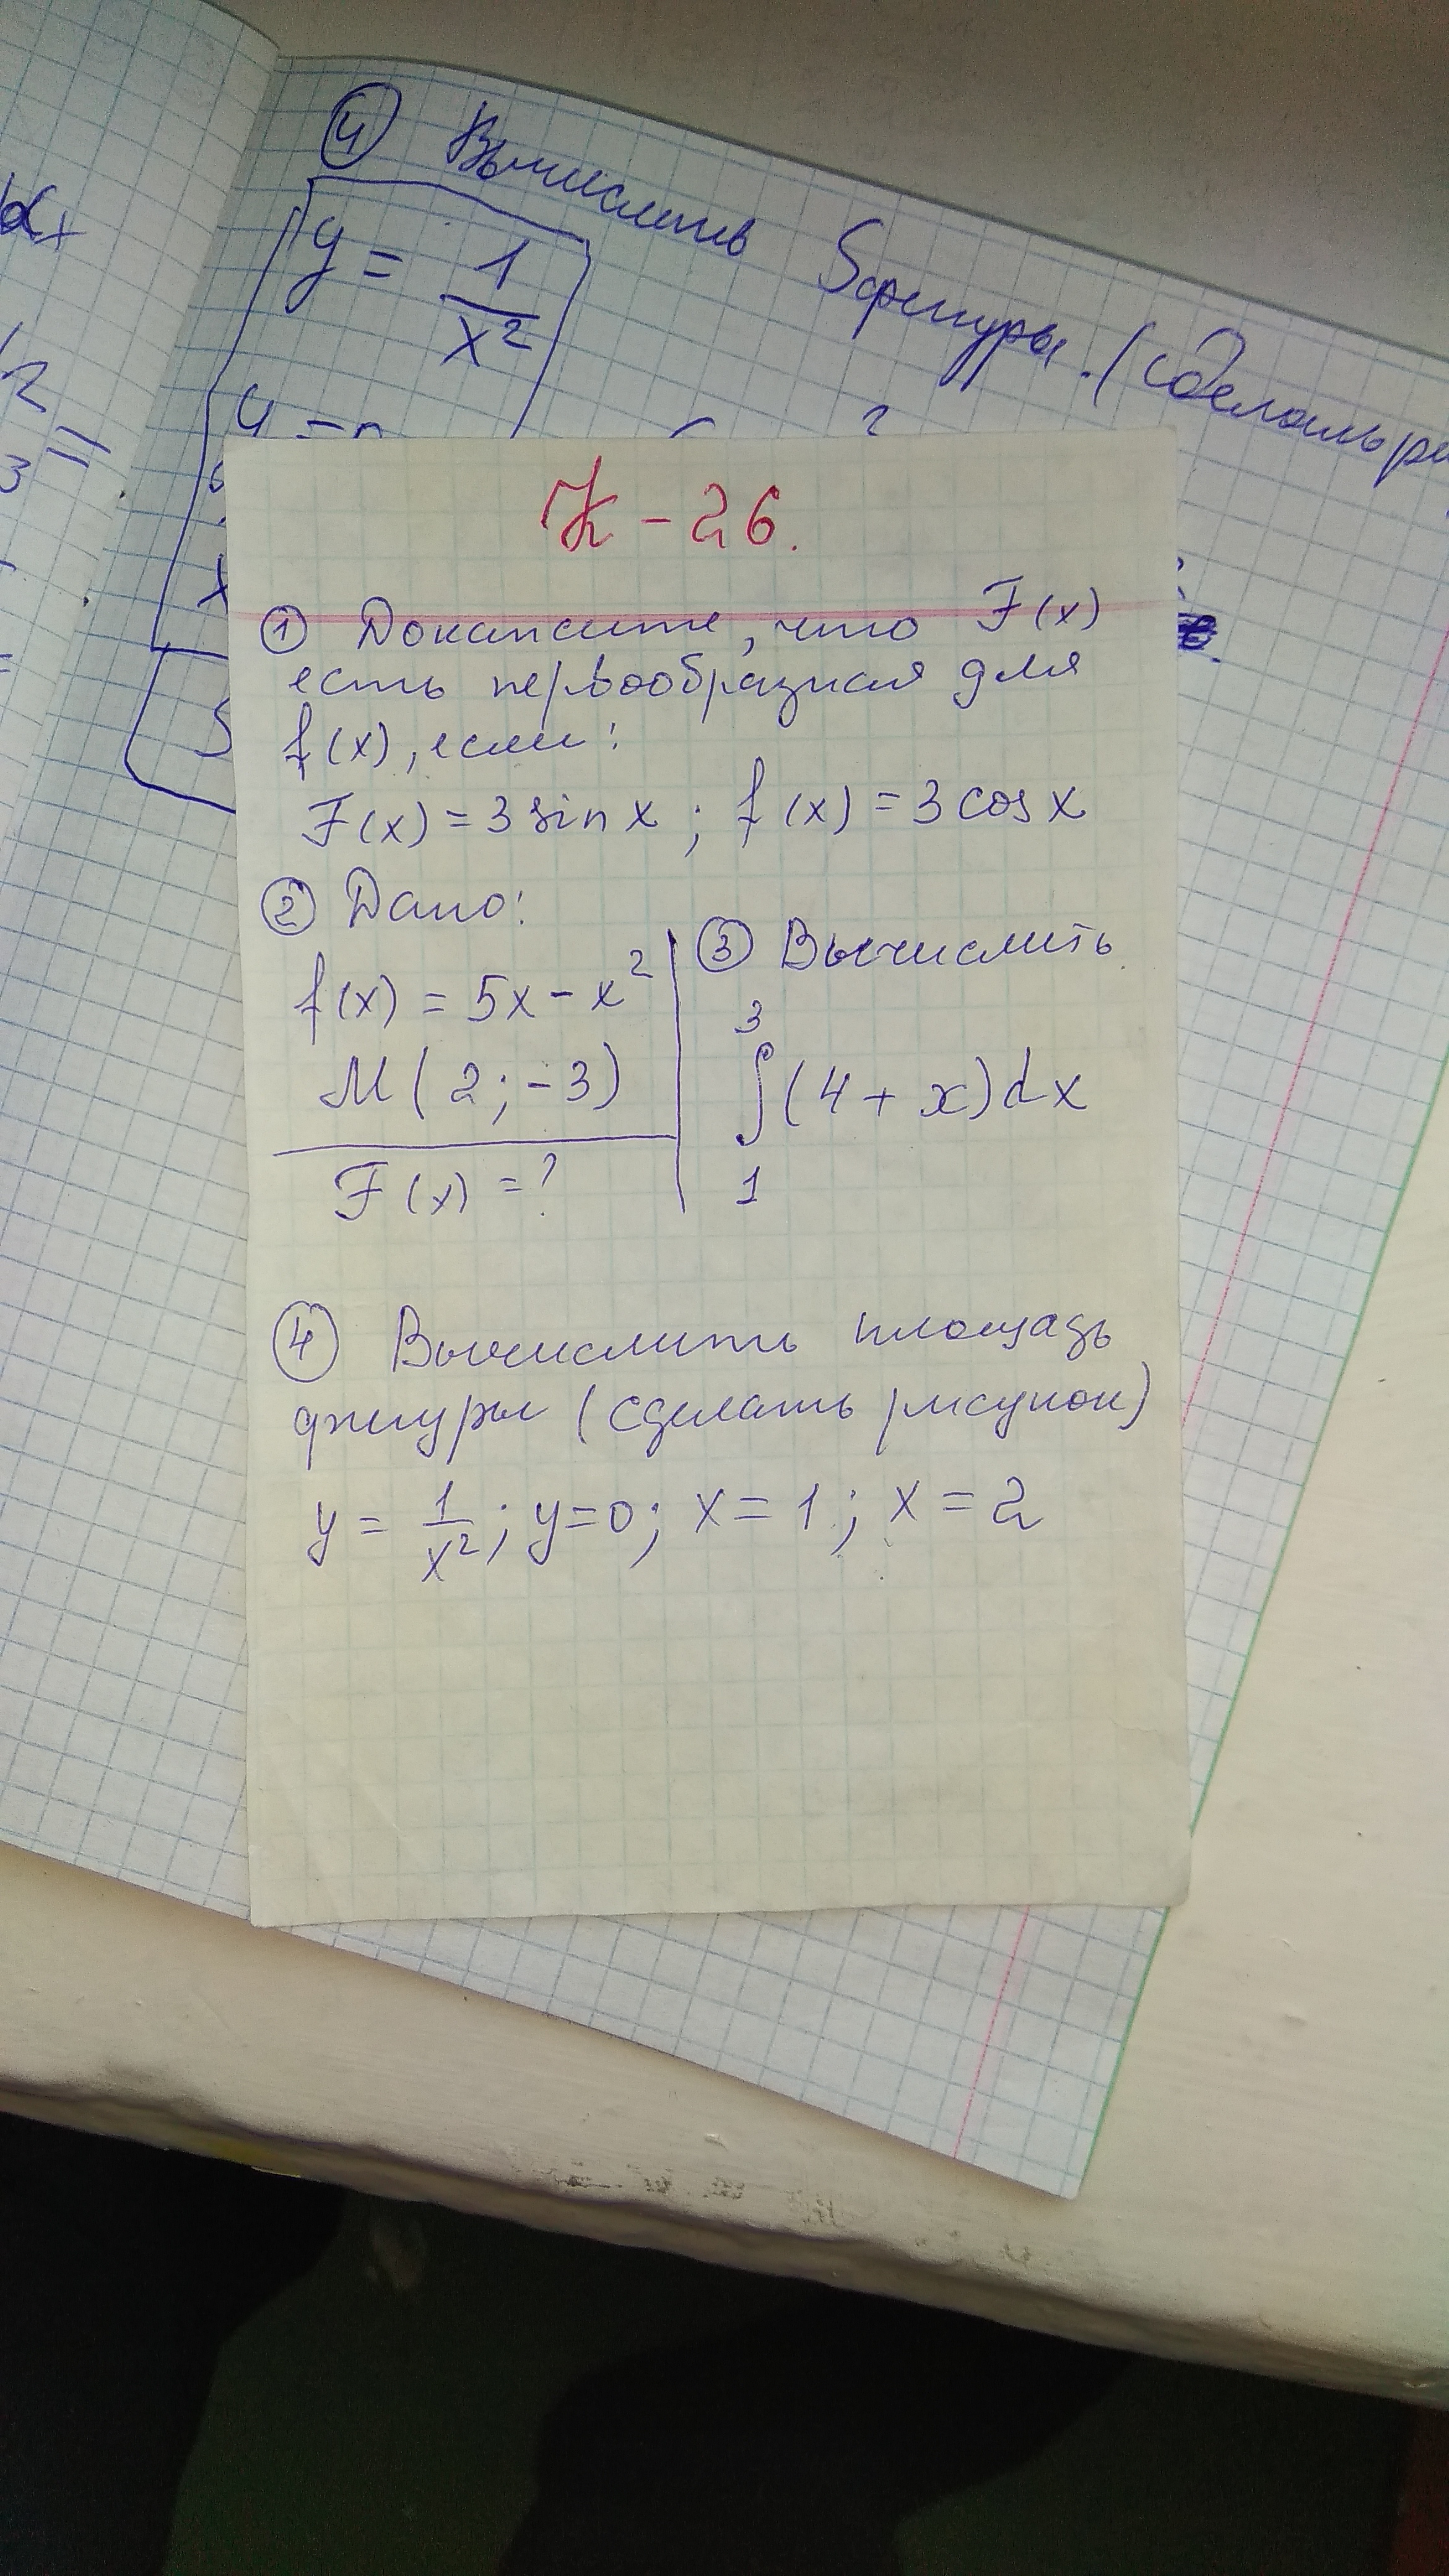 ④ Вычислить Sфигуры. (сделать ри
y = 1/x²
К - 26.
① Докажите, что F(x)
есть первообразная для
f(x), если:
F(x) = 3 sin x ; f(x) = 3 cos x
② Дано:
f(x) = 5x - x²
M ( 2 ; -3 )
F(x) = ?
③ Вычислить
3
∫ (4 + x) dx
1
④ Вычислить площадь
фигуры (сделать рисунок)
y = 1/x² ; y = 0 ; x = 1 ; x = 2